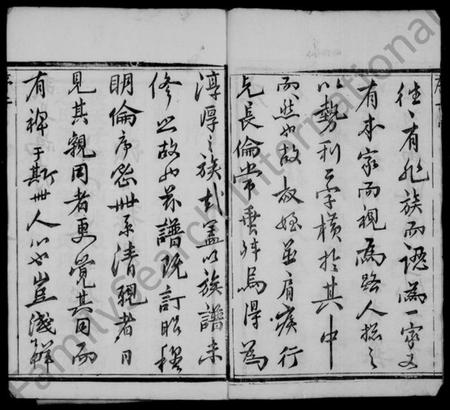 往往有非族而認為一家又
有本家而視為路人揔之
以勢利字橫於其中
而然也故叔姪並肩疾行
先長倫常乖舛烏得為
淳厚之族哉蓋以族譜未
修之故也茲譜既訂昭穆
明倫序密世系清親者日
見其親同者更覺其同而
有裨于斯世人心豈淺鮮
FamilySearch International